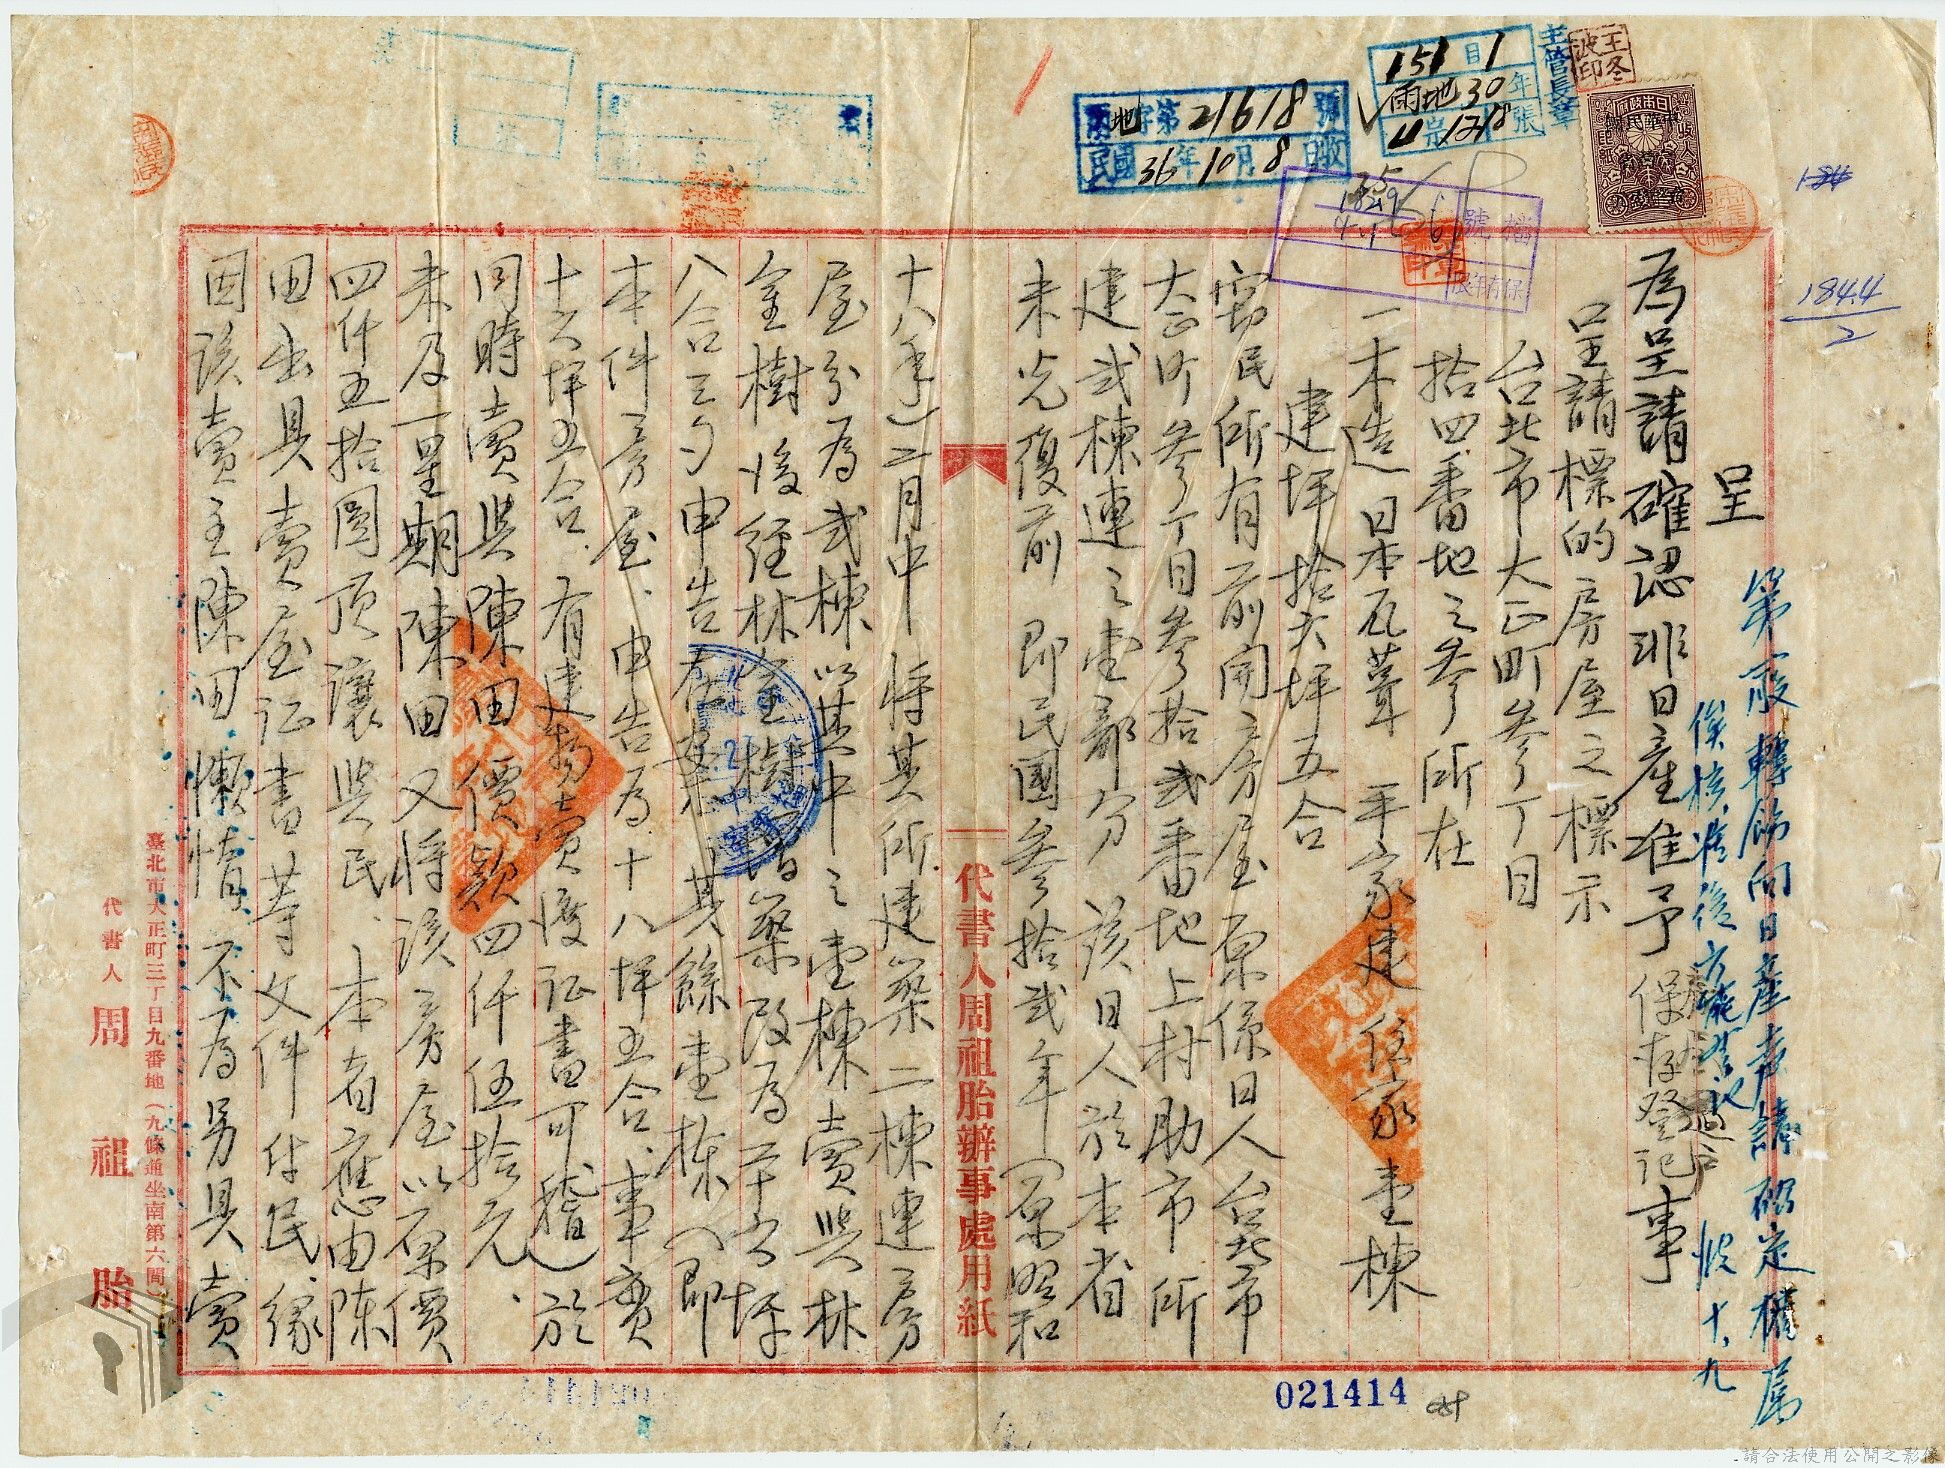 呈
為呈請確認非日產准予保存登記事
呈請標的房屋之標示
台北市大正町參丁目
拾四番地之參所在
一木造日本瓦葺平家建住家壹棟
建坪拾六坪五合
窃民所有前開房屋原係日人台北市
大正町參丁目參拾貳番地上村助市所
建貳棟連之壹部分 該日人於本省
未光復前 即民國參拾貳年(原昭和
十八年)二月中 將其所建築二棟連房
屋分為貳棟 以其中之壹棟賣與林
金樹 後經林金樹增築改為二十六坪
八合三勺申告在案 其餘壹棟(即
本件房屋、申告為十八坪五合、事實
十六坪五合、有建物賣渡証書可稽)於
同時賣與陳田 價款四仟伍拾元、
未及一星期陳田又將該房屋以原價
四仟五拾圓頂讓與民、本者應由陳
田出具賣屋証書等文件付民、緣
因該賣主陳田懶惰 不為另具賣
第一段轉飭向日產處請確定權屬
俟核准後方能登記
十、九
代書人周祖胎辦事處用紙
臺北市大正町三丁目九番地(九條通坐南第六間)
代書人 周祖胎
地字第21618號
民國36年10月8日收
151目1
雨地30年
1218張
主管長章
王冬波印
檔號
保存年限
1844
2
021414
請合法使用公開之影像